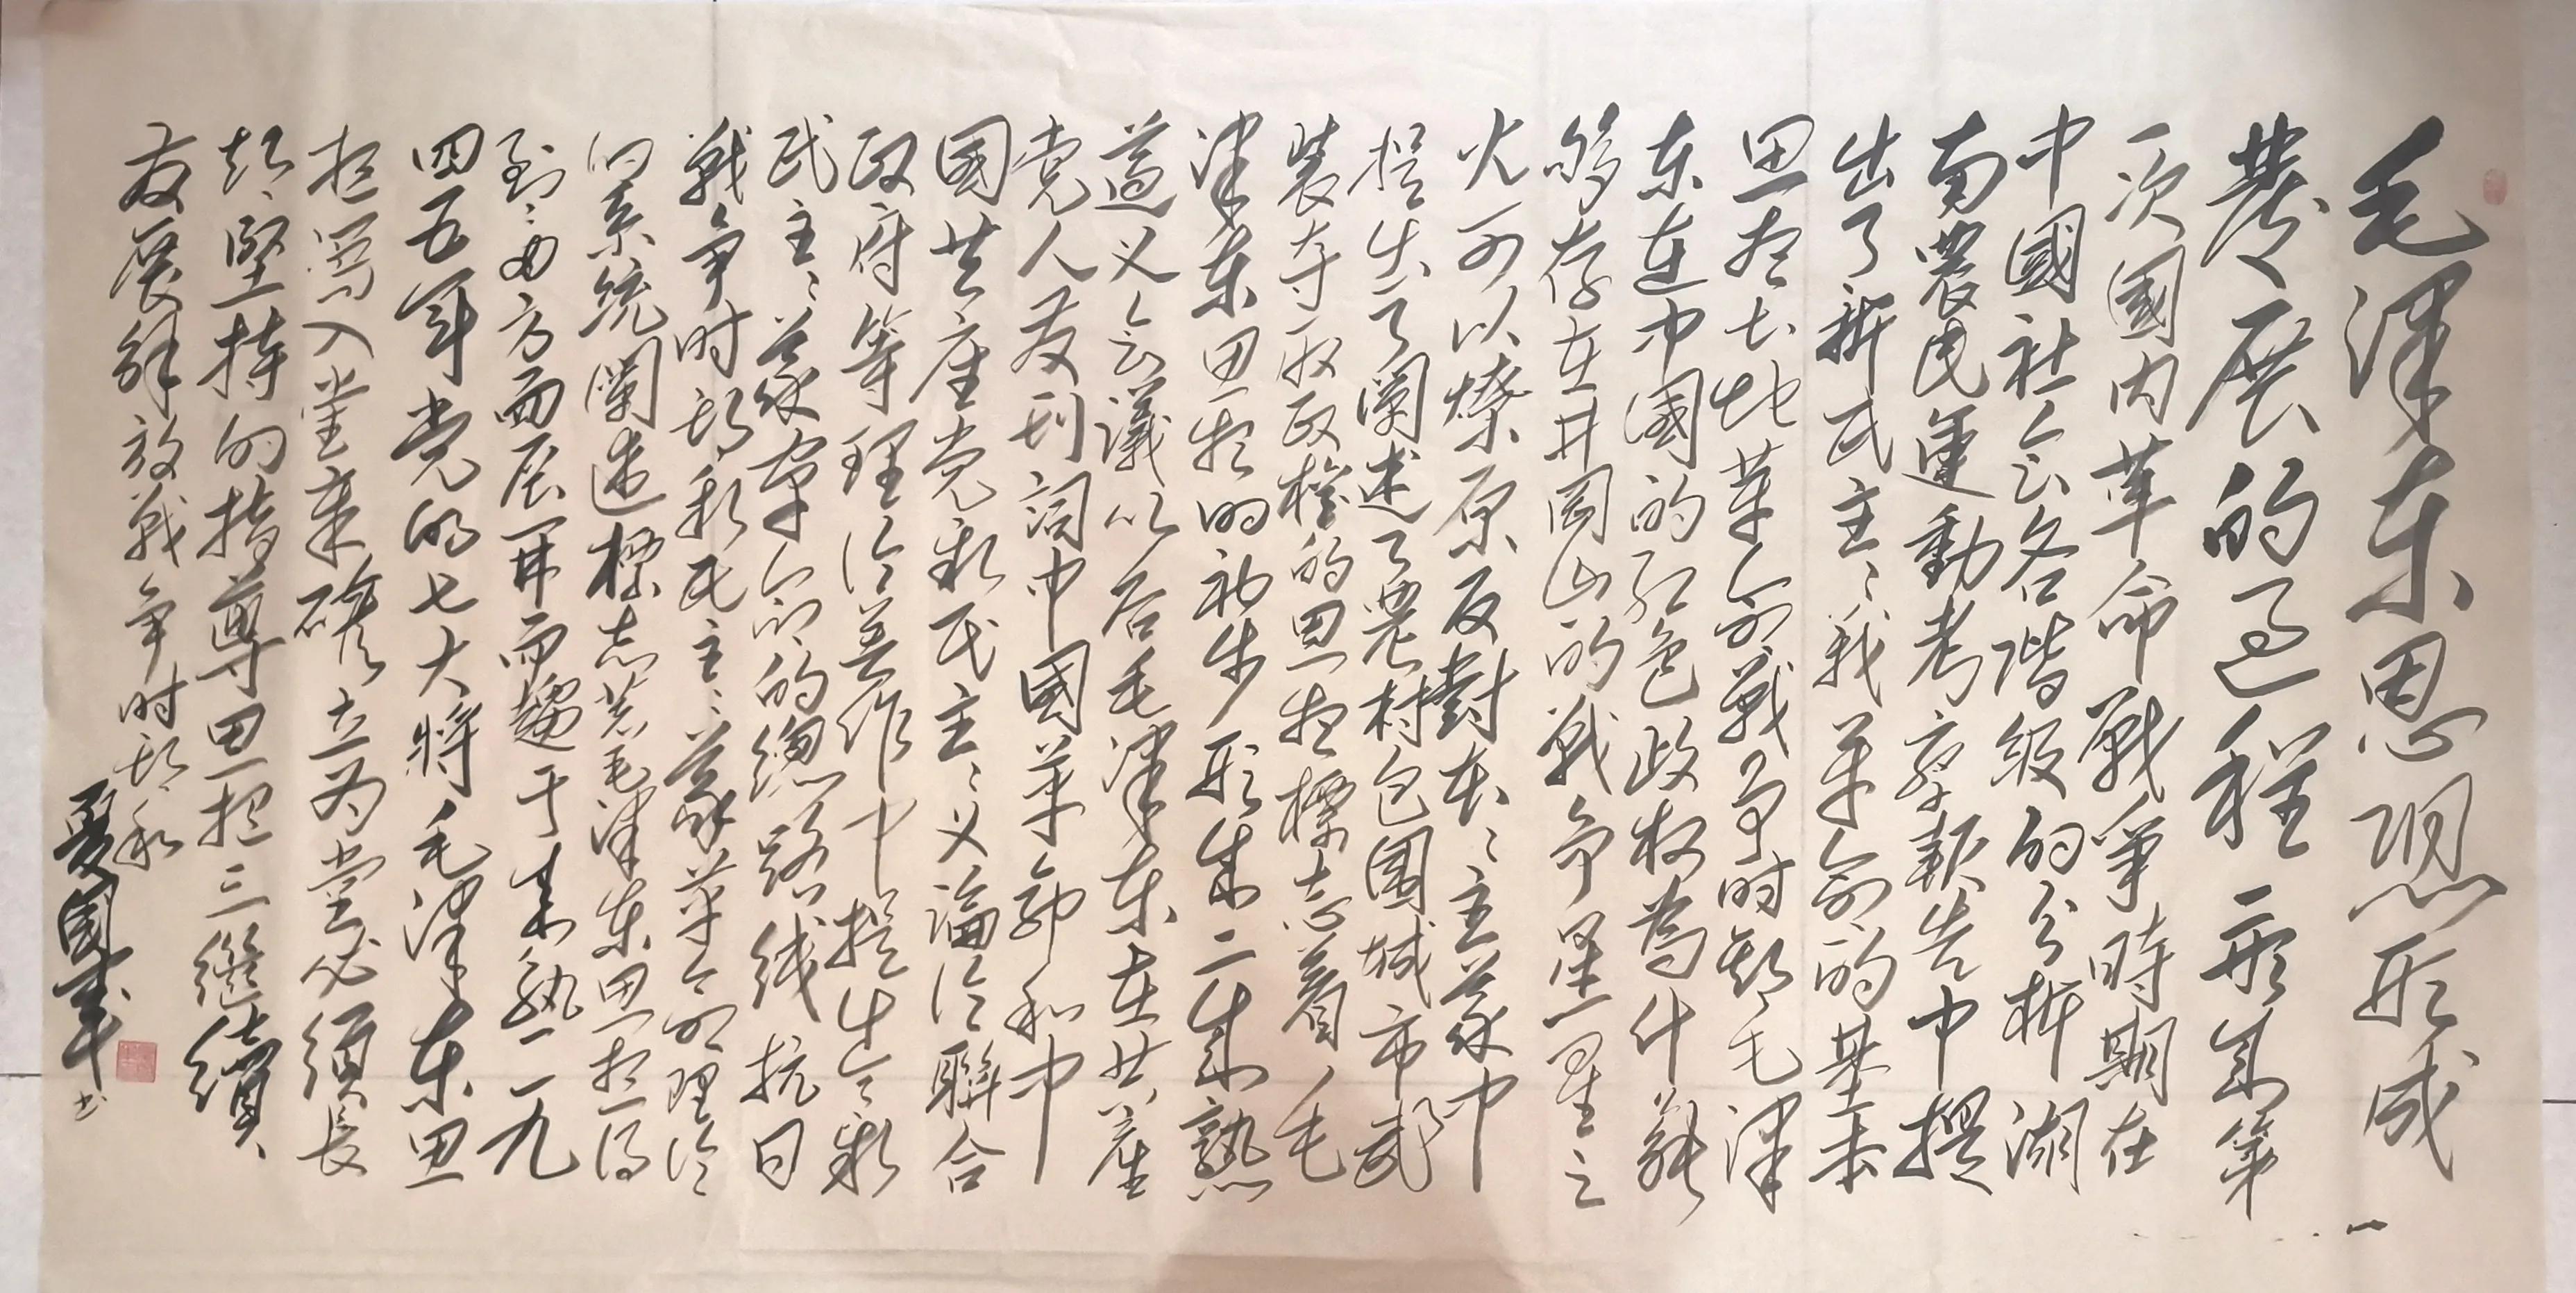 毛泽东思想形成
发展的过程一形成第
一次國内革命戰爭時期在
中國社会各階级的分析湖
南農民運動考察報告中提
出了新民主主義革命的基本
思想土地革命戰争时期毛泽
东在中國的红色政权為什能
够存在井岡山的战争星星之
火可以燎原反對本本主義中
提出了阐述了農村包圍城市武
装夺取政權的思想標志着毛
泽东思想的初步形成二成熟
遵义会議以后毛泽东在共產
党人发刊詞中國革命和中
國共産党新民主主义論论聯合
政府等理论著作中提出了新
民主主義革命的總路线抗日
戰争时期新民主主義革命理论
的系统闡述標志着毛泽东思想得
到多方面展開而趨于成熟一九
四五年党的七大将毛泽东思
想写入党章確立为党必须長
期堅持的指導思想三繼續
发展解放戰争时期和